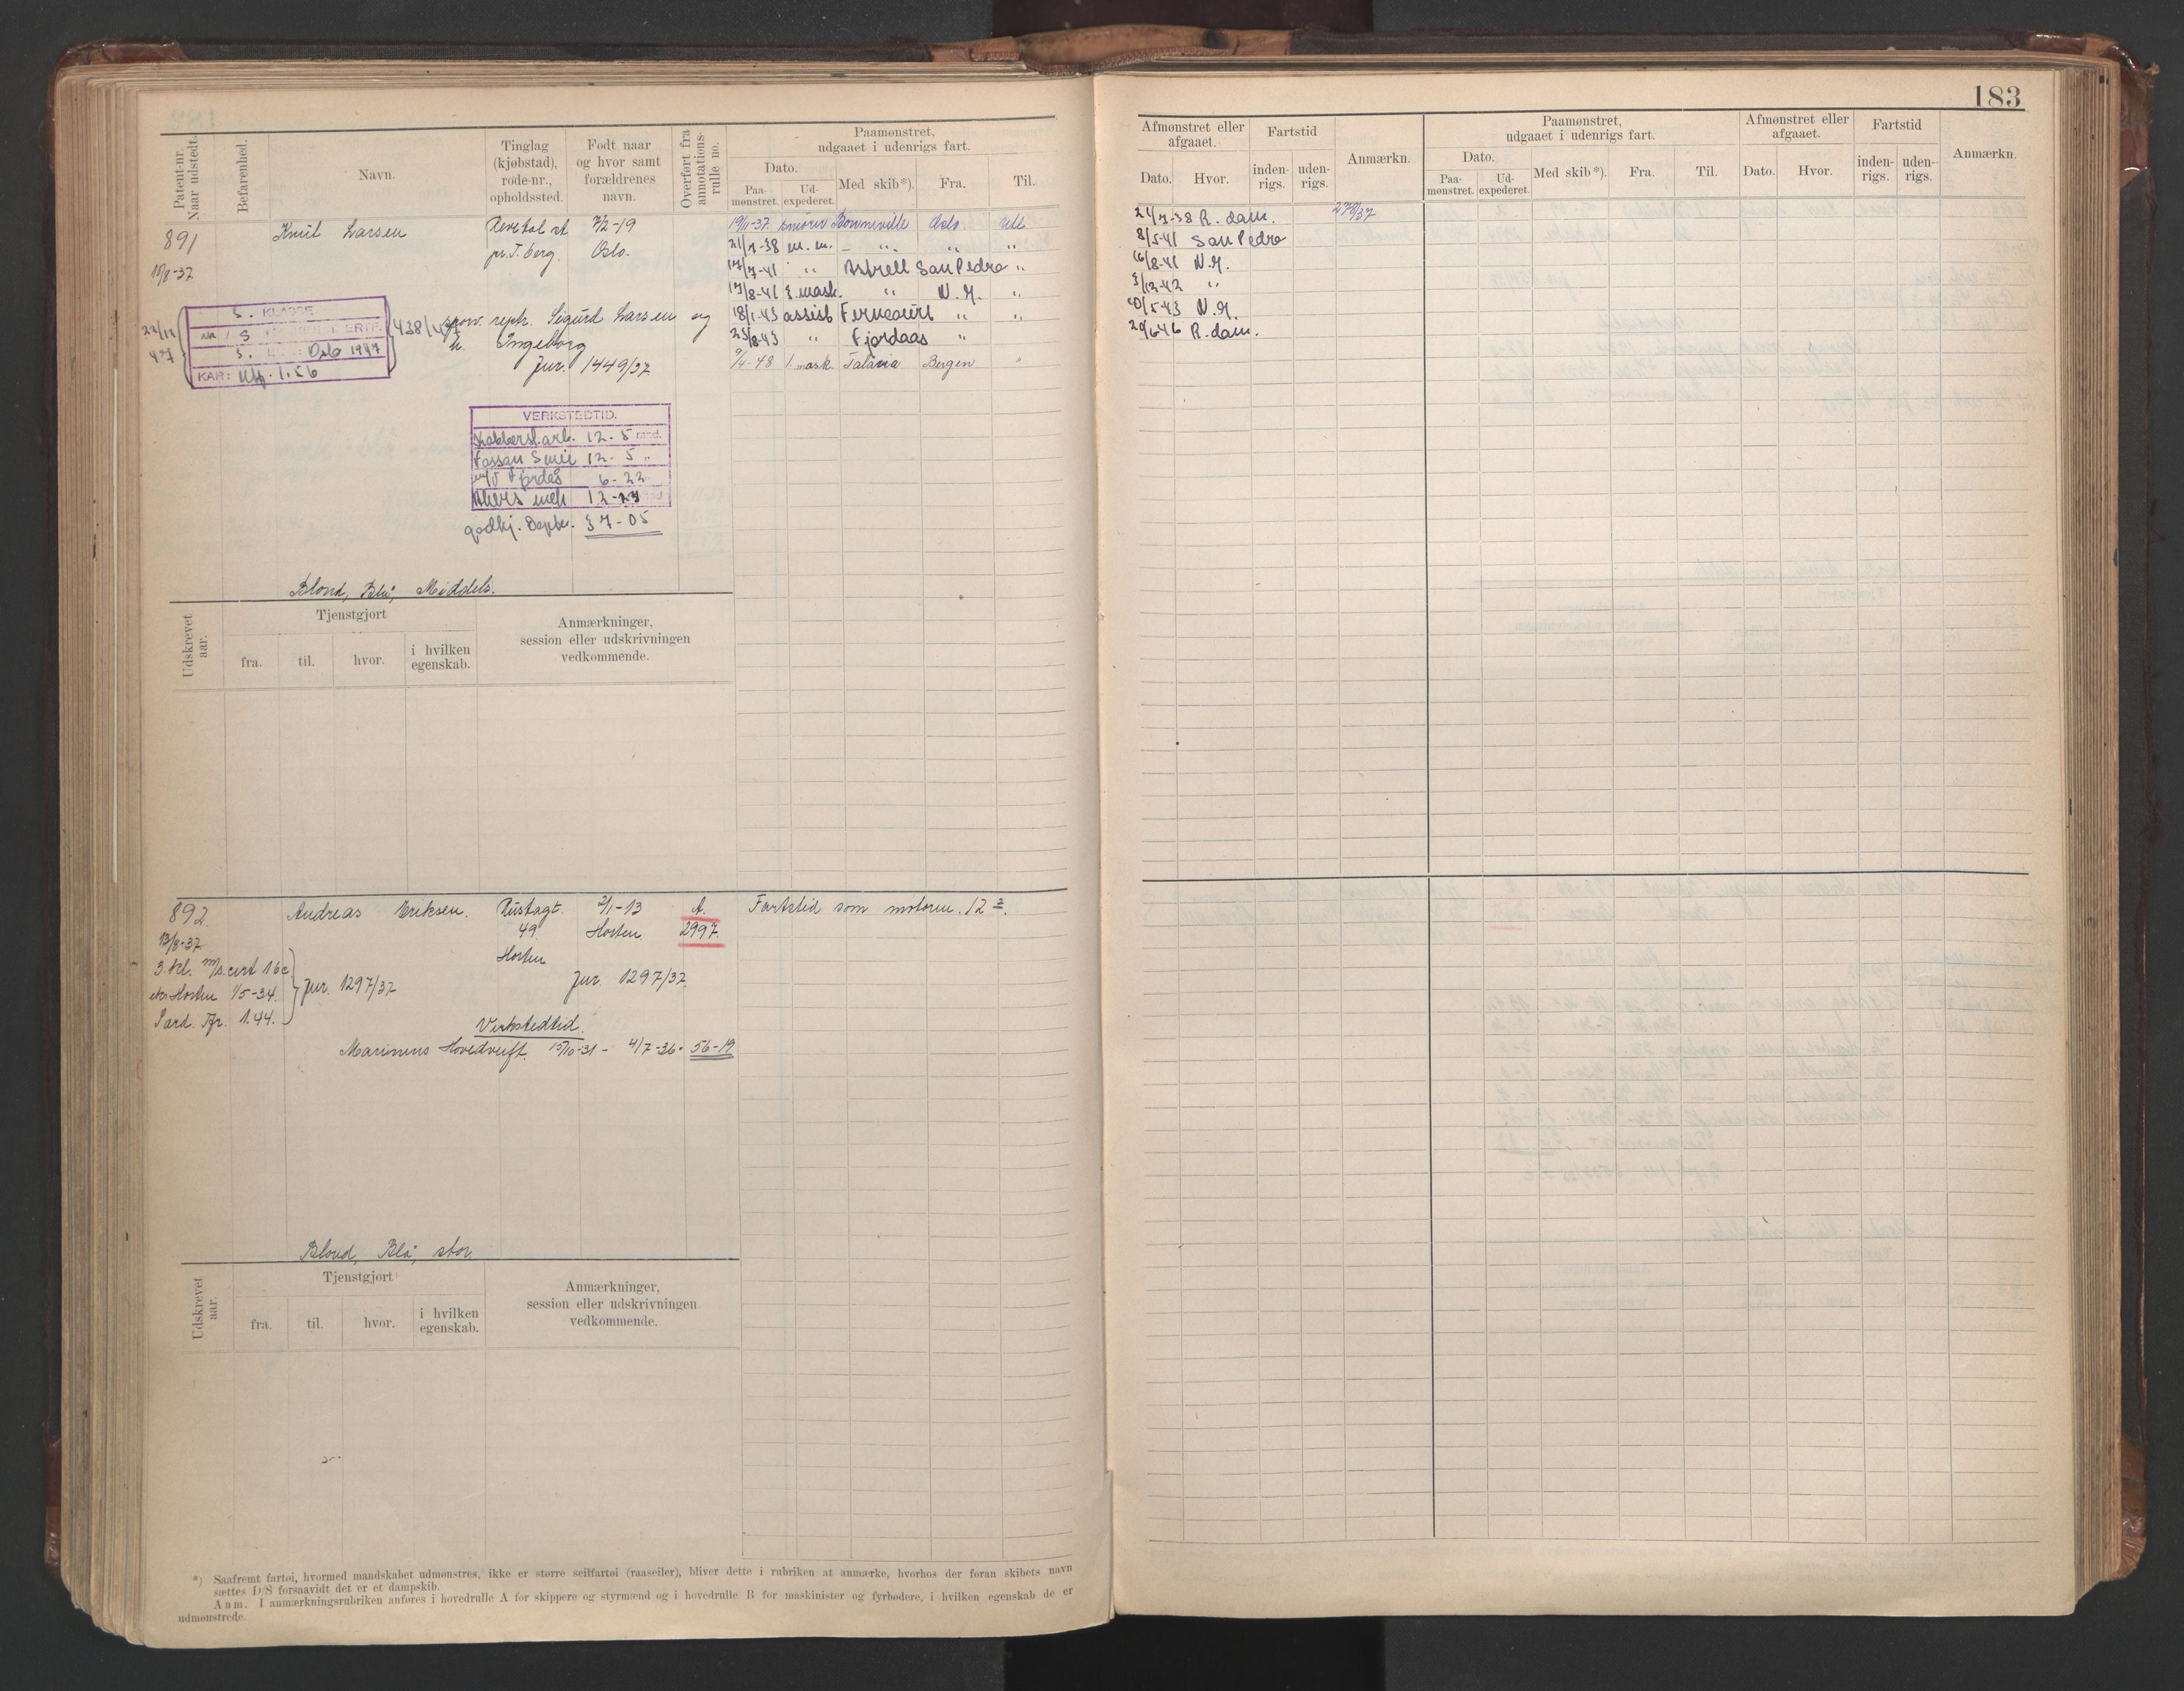 183
Patent-nr. Naar udstedt.
Befarenhed.
Navn.
Tinglag (kjøbstad), rode-nr., opholdssted.
Født naar og hvor samt forældrenes navn.
Overført fra annotations-rulle no.
Paamønstret, udgaaet i udenrigs fart.
Dato.
Paa-mønstret.
Ud-expederet.
Med skib*).
Fra.
Til.
Afmønstret eller afgaaet.
Dato.
Hvor.
Fartstid
inden-rigs.
uden-rigs.
Anmærkn.
Paamønstret, udgaaet i udenrigs fart.
Dato.
Paa-mønstret.
Ud-expederet.
Med skib*).
Fra.
Til.
Afmønstret eller afgaaet.
Dato.
Hvor.
Fartstid
inden-rigs.
uden-rigs.
Anmærkn.
891
Knut Larsen
Revetal st
7/2-19
pr. T.berg.
Oslo.
Sigurd Larsen og
h. Ingeborg
Jur. 1449/37
KLASSE
Oslo 1947
KAR:
438/47
19/11-37 smører Bournville Oslo utl
21/7-38 m.m. - " - " "
17/7-41 " Astrell San Pedro "
17/8-41 3. mask. " N.Y. "
18/1-43 assist Ferncourt " "
23/8-43 " Fjordaas "
9/4-48 1 mask. Talavia Bergen "
21/7-38 R.dam. 278/37
8/5-41 San Pedro
16/8-41 N.Y.
3/12-42 "
10/5-43 N.Y.
20/6 46 R.dam.
VERKSTEDTID.
Kobberst.arb. 12-5 mnd.
Smei 12-5 "
m/T Fjordås 6-22
Akers mek 12-23
godkj. Dept. 37-05
Blond, Blå, Middels.
Udskrevet aar.
Tjenstgjort
fra.
til.
hvor.
i hvilken egenskab.
Anmærkninger, session eller udskrivningen vedkommende.
892
13/8-37
Andreas Eriksen.
Rustagt.
49
Horten
2/1-13
Horten
A.
2997
Fartstid som motorm. 12
3. kl. m/s. cert 16c
Horten 1/5-34.
1.44.
Jur. 1297/37
Jur. 1297/37.
Verkstedtid.
Marinens Hovedverft. 15/10-31 - 4/7-36 - 56-19
Blond, Blå, stor.
Udskrevet aar.
Tjenstgjort
fra.
til.
hvor.
i hvilken egenskab.
Anmærkninger, session eller udskrivningen vedkommende.
*) Saafremt fartøi, hvormed mandskabet udmønstres, ikke er større seilfartøi (raaseiler), bliver dette i rubriken at anmærke, hvorhos der foran skibets navn
sættes D/S forsaavidt det er et dampskib.
Anm. I anmærkningsrubriken anføres i hovedrulle A for skippere og styrmænd og i hovedrulle B for maskinister og fyrbødere, i hvilken egenskab de er
udmønstrede.